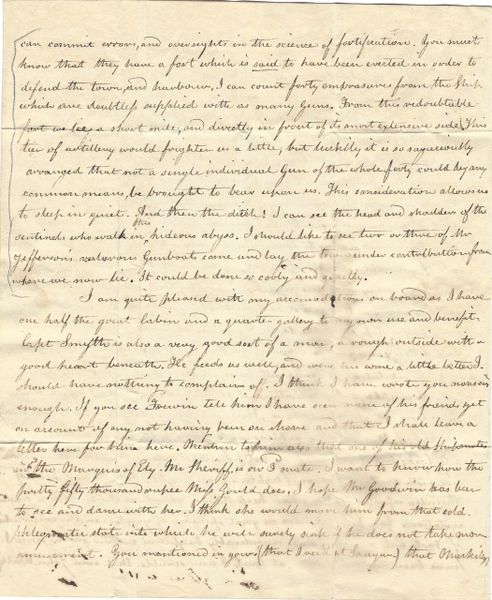 can commit errors, and oversights in the science of fortification. You must
know that they have a fort which is said to have been erected in order to
defend the town, and harbour, I can count forty embrasures from the Ship
which are doubtless supplied with as many Guns. From this redoubtable
fort we lie a short mile, and directly in front of its most extensive side. This
tier of artillery would frighten us a little, but luckily it is so sagaciously
arranged that not a single individual Gun of the whole forty could by any
common means, be brought to bear upon us. This consideration allows us
to sleep in quiet. And then the ditch! I can see the head and shoulders of the
sentinels who walk in this hideous abyss. I should like to see two or three of Mr
Jefferson's valorous Gunboats come and lay the town under contribution from
where we now lie. It could be done so cooly and quietly.
I am quite pleased with my accomodations on board as I have
one half the great Cabin and a quarter-gallery to my own use and benefit
Capt Smyth is also a very good sort of a man, a rough outside with a
good heart beneath. He feeds us well, and were his wine a little better I
should have nothing to complain of. I think I have wrote you nonsense
enough. If you see Trewin tell him I have seen none of his friends yet
on account of my not having been on shore and that I shall leave a
letter here for him here. Mention to him also that one of his old Shipmates
in the Marquis of Ely. Mr Sheriff, is our 3 mate. I want to know how the
pretty fifty thousand rupee Miss Gould does. I hope Mr Goodwin has been
to see and dance with her. I think she would move him from that cold
phlegmatic state into which he will surely sink if he does not take more
amusement. You mentioned in yours (that I recd at Saugur) that